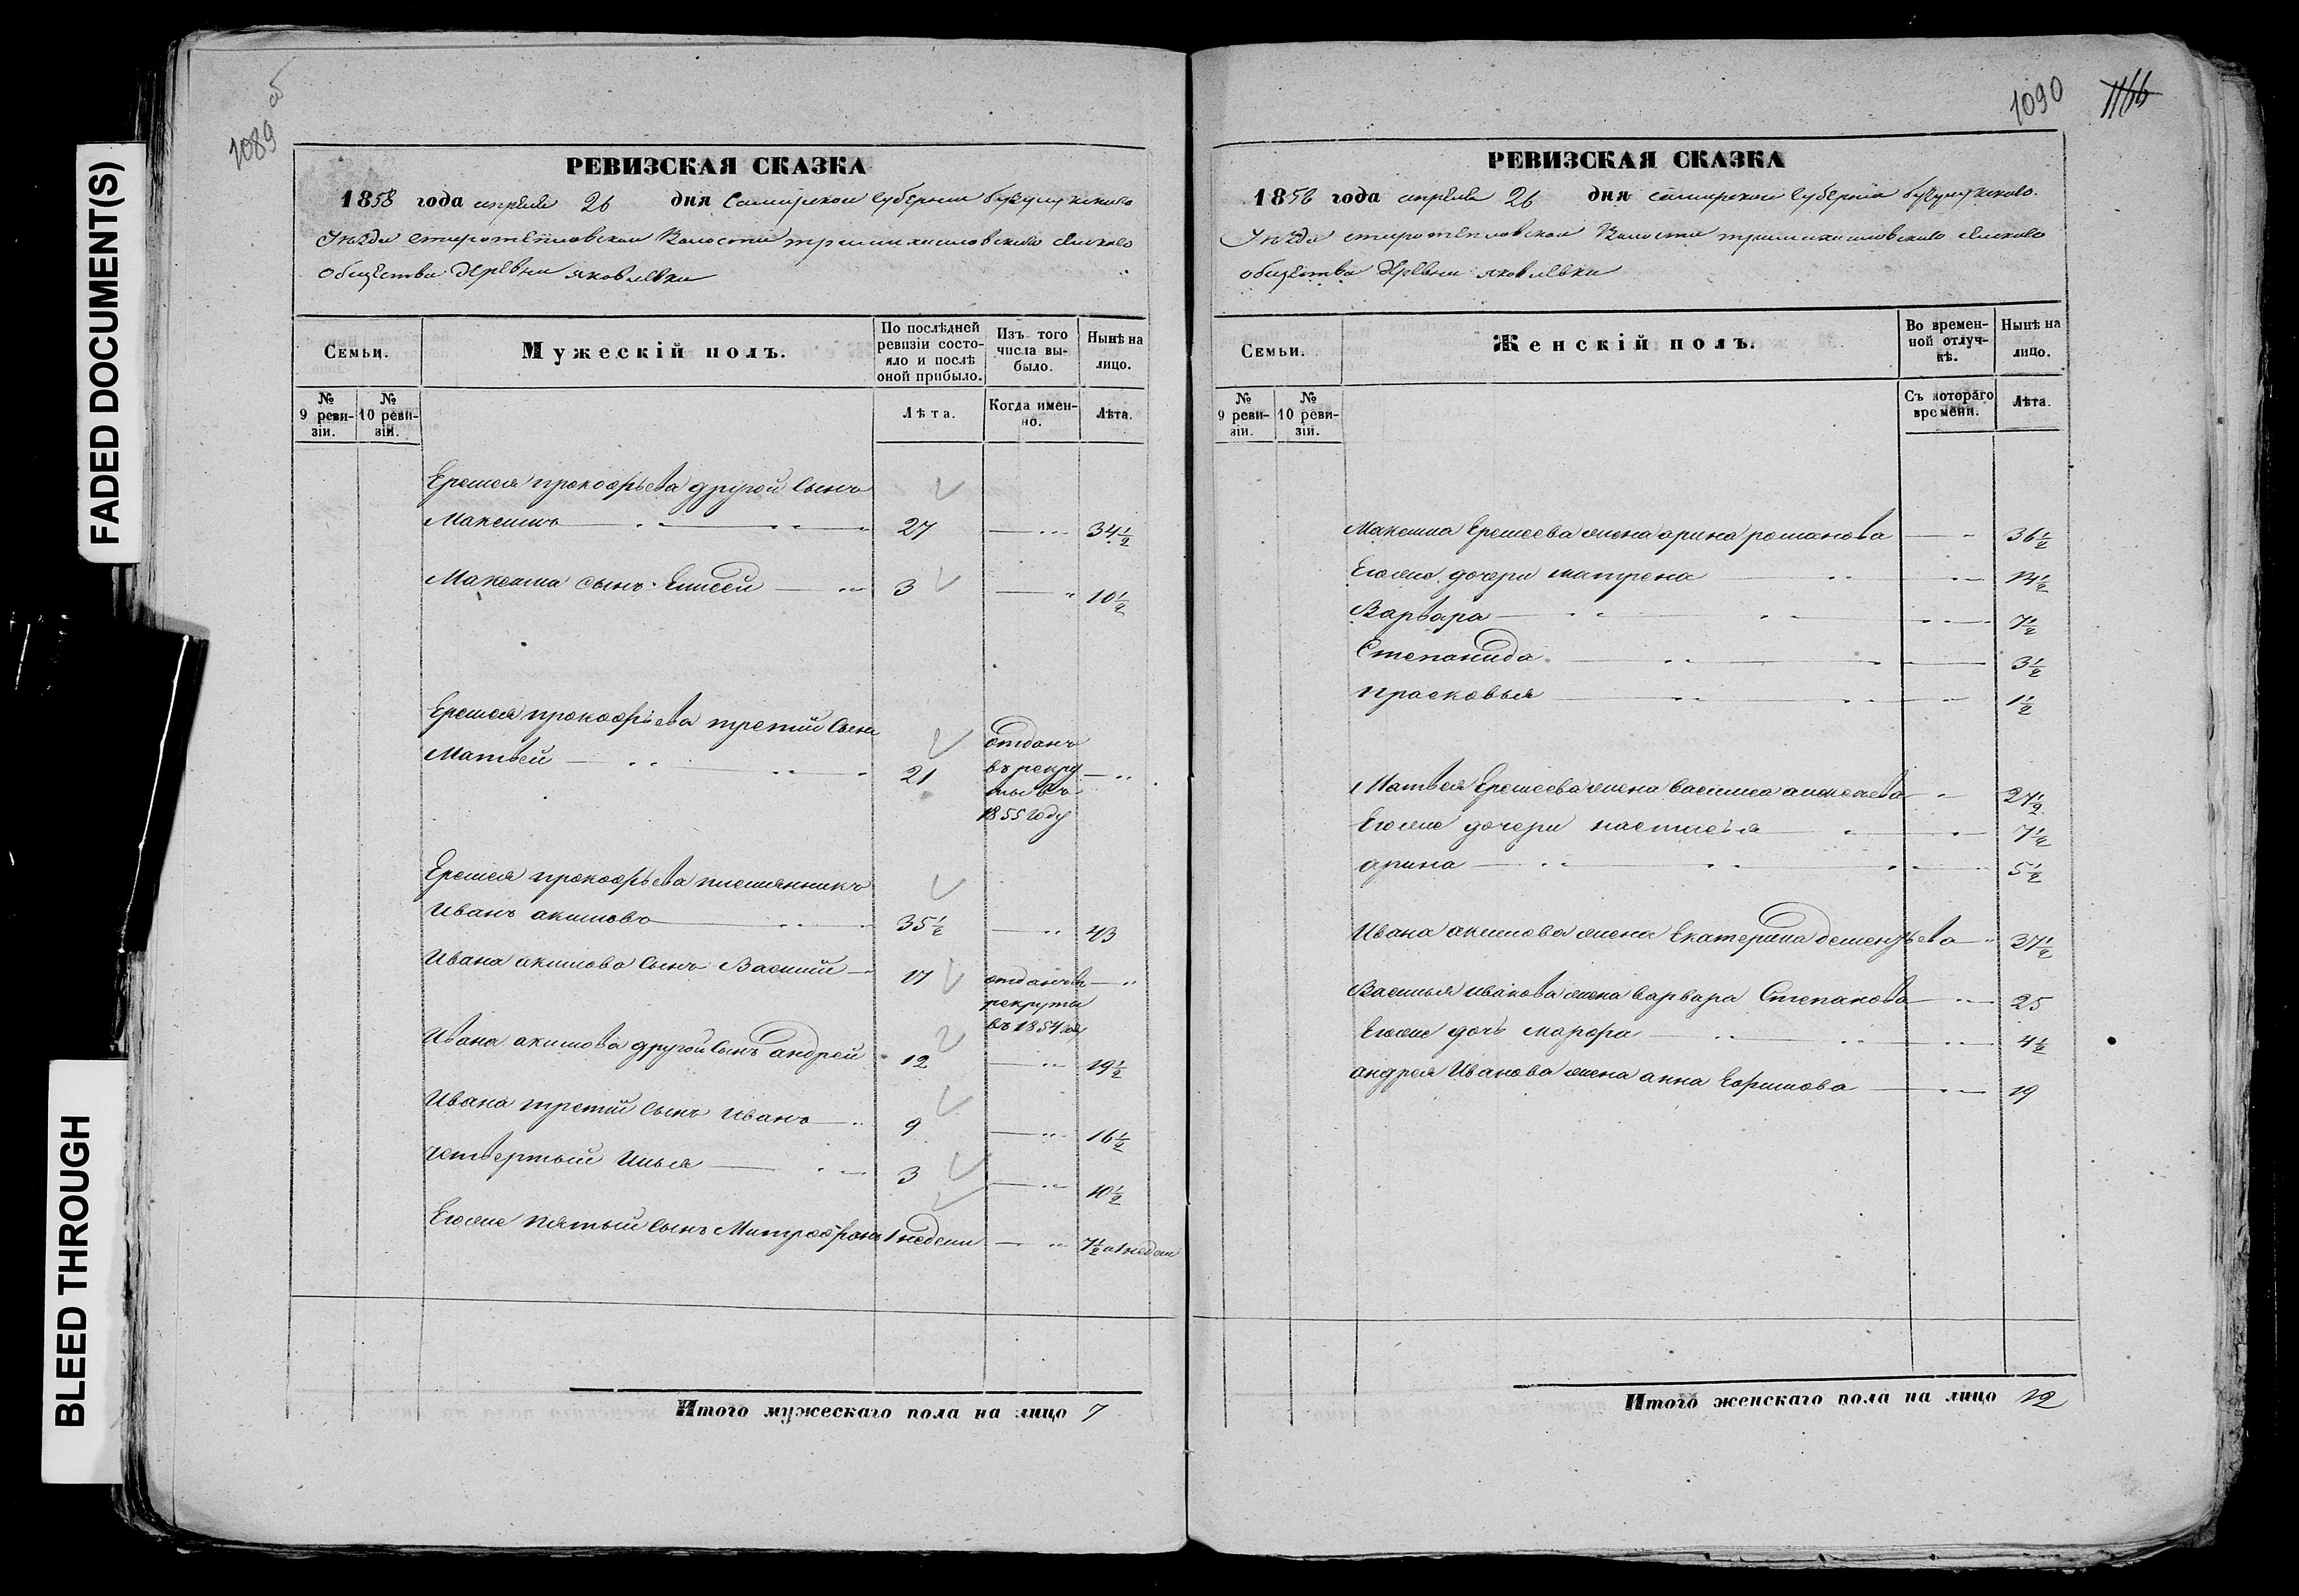 FADED DOCUMENT(S)
BLEED THROUGH
1089 об
РЕВИЗСКАЯ СКАЗКА
1858 года апреля 26 дня Самарской губернии бугульминскаго
Уезда волости сельскаго
общества Деревни яковлевки
Семьи.
Мужескій полъ.
По послѣдней ревизіи состояло и послѣ оной прибыло.
Изъ того числа выбыло.
Нынѣ на лицо.
№ 9 ревизіи.
№ 10 ревизіи.
Лѣта.
Когда именно.
Лѣта.
Еремея прокофьева другой Сынъ
Максимъ 27 34½
Максима сынъ Елисей 3 10½
Еремея прокофьева третий Сынъ
Матвей 21 отданъ
в рекру
ты въ
1855 году
Еремея прокофьева племянникъ
Иванъ акимовъ 35½ 43
Ивана акимова Сынъ Василий 17 отданъ в
рекруты
въ 1854 году
Ивана акимова другой Сынъ андрей 12 19½
Ивана третий Сынъ Иванъ 9 16½
четвертый Илья 3 10½
Егоже пятый Сынъ Митрофанъ 1 недели 7½ и 1 недели
Итого мужескаго пола на лицо 7
1090 1166
РЕВИЗСКАЯ СКАЗКА
1858 года апреля 26 дня Самарской губернии бугульминскаго
Уезда волости сельскаго
общества Деревни яковлевки
Семьи.
Женскій полъ.
Во временной отлучкѣ.
Нынѣ на лицо.
№ 9 ревизіи.
№ 10 ревизіи.
Съ котораго времени.
Лѣта.
Максима Еремеева жена арина романова 36½
Егоже дочери матрена 14½
Варвара 7½
Степанида 3½
прасковья 1½
Матвея Еремеева жена василиса алексеева 27½
Егоже дочери настасья 7½
арина 5½
Ивана акимова жена Екатерина дементьева 37½
Василья иванова жена варвара Степанова 25
Егоже дочь марфа 4½
андрея Иванова жена анна Ефимова 19
Итого женскаго пола на лицо 12